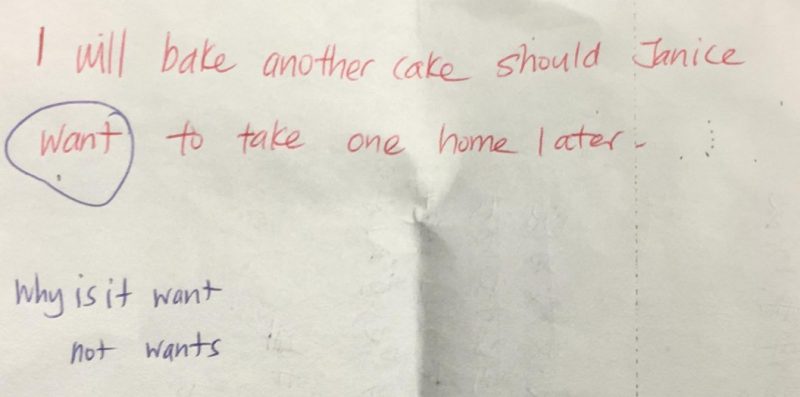 I will bake another cake should Janice
want to take one home later.
Why is it want
not wants